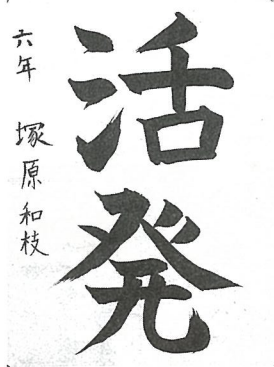 活発
六年 塚原和枝